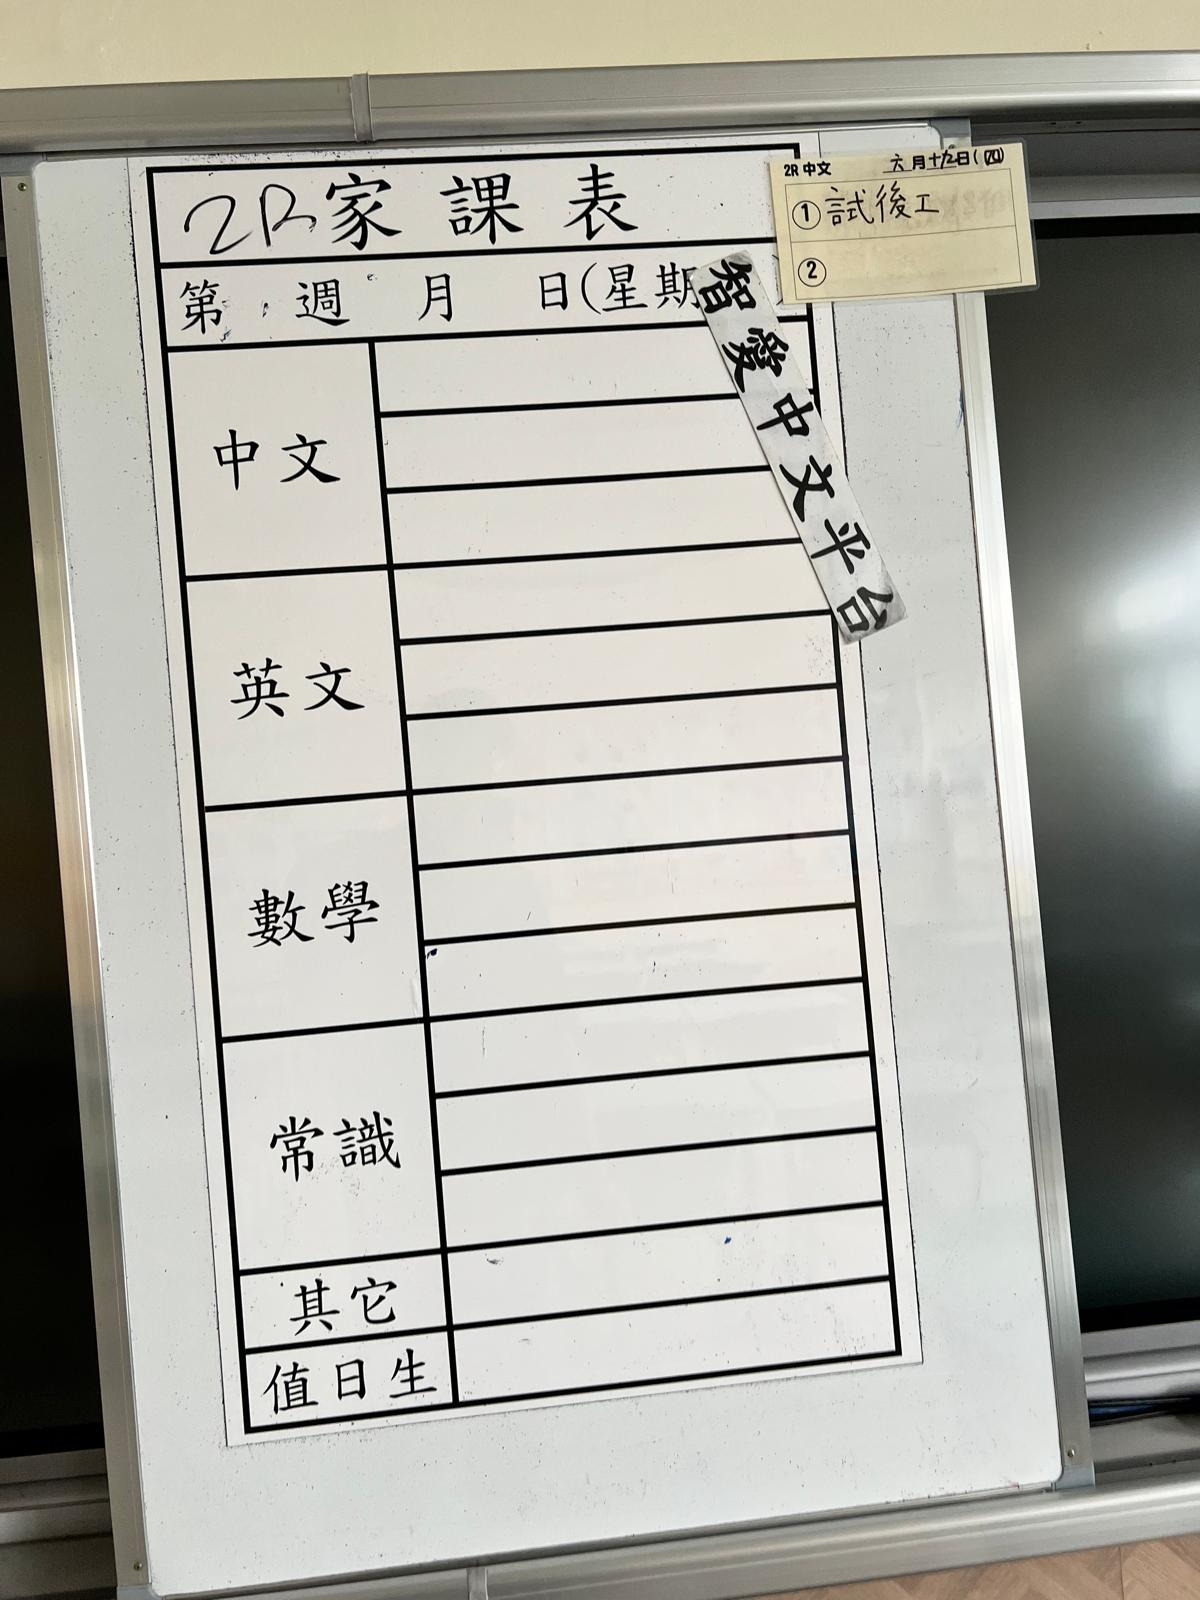 2R家課表
第 週 月 日(星期 )
中文
英文
數學
常識
其它
值日生
2R 中文 六月十九日(四)
① 試後工
②
智愛中文平台